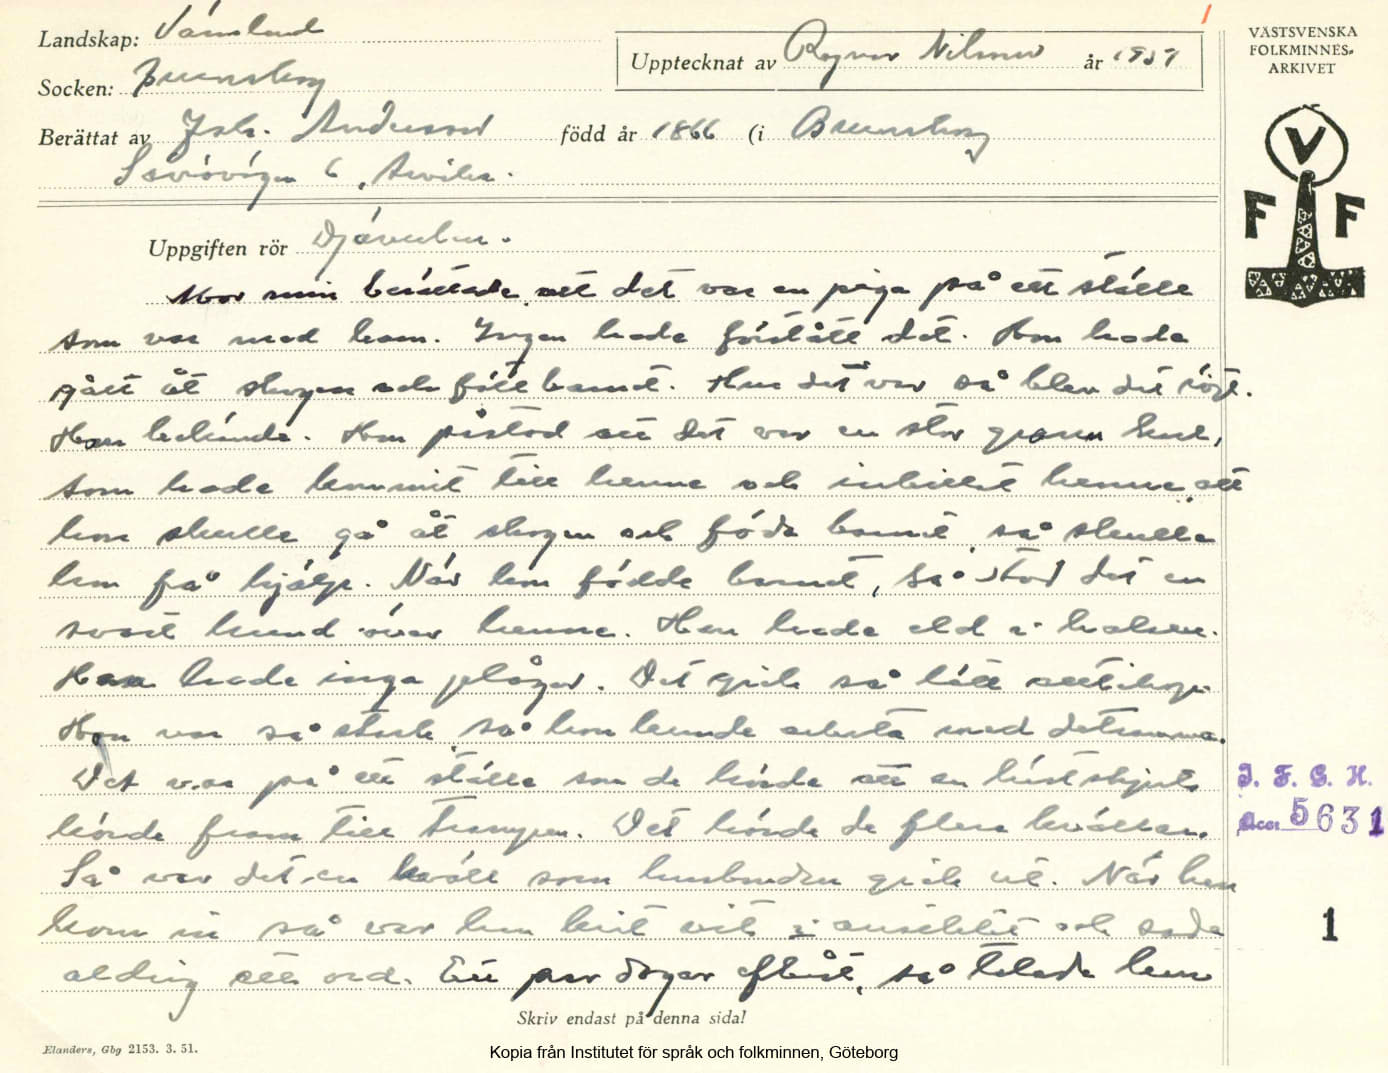 1
Landskap: Värmland
Socken: Brunskog
Berättat av Joh. Andersson född år 1866 (i Brunskog
6, Arvika.
Upptecknat av Ragnar Nilsson år 1951
VÄSTSVENSKA
FOLKMINNES-
ARKIVET
V
F F
Uppgiften rör Djävulen.
Mor min berättade att det var en piga på ett ställe
som var med barn. Ingen hade förstått det. Hon hade
gått åt skogen och fött barnet. Hur det var så blev det röjt.
Hon bekände. Hon påstod att det var en stor grann karl,
som hade kommit till henne och inbillat henne att
hon skulle gå åt skogen och föda barnet, så skulle
hon få hjälp. När hon födde barnet, så stod det en
svart hund över henne. Han hade eld i halsen.
Hon hade inga plågor. Det gick så lätt alltihop.
Hon var så stark så hon kunde arbeta med detsamma.
Det var på ett ställe som de hörde att en hästskjuts
körde fram till trappen. Det hörde de flera kvällar.
Så var det en kväll som husbonden gick ut. När han
kom in så var han krit vit i ansiktet och sade
aldrig ett ord. Ett par dagar efteråt, så talade han
Skriv endast på denna sida!
I. F. G. H.
Acc. 5631
1
Elanders, Gbg 2153. 3. 51.
Kopia från Institutet för språk och folkminnen, Göteborg